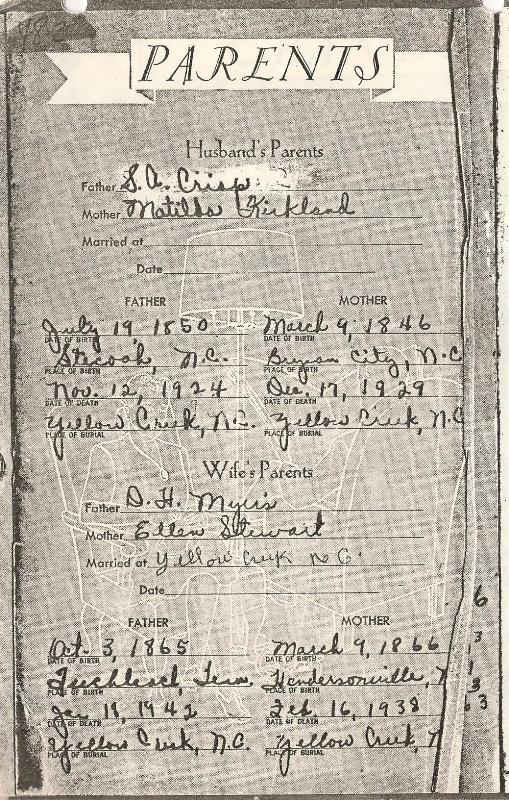 PARENTS
Husband's Parents
Father S. A. Crisp
Mother Matilda Kirkland
Married at
Date
FATHER MOTHER
July 19, 1850 March 9, 1846
DATE OF BIRTH DATE OF BIRTH
Stecoah, N.C. Bryson City, N.C
PLACE OF BIRTH PLACE OF BIRTH
Nov. 12, 1924 Dec. 17, 1929
DATE OF DEATH DATE OF DEATH
Yellow Creek, N.C. Yellow Creek, N.C
PLACE OF BURIAL PLACE OF BURIAL
Wife's Parents
Father D. H. Myers
Mother Ellen Stewart
Married at Yellow Creek N C.
Date
FATHER MOTHER
Oct. 3, 1865 March 9, 1866
DATE OF BIRTH DATE OF BIRTH
Tenn. Hendersonville, N
PLACE OF BIRTH PLACE OF BIRTH
1942 Feb. 16, 1938
DATE OF DEATH DATE OF DEATH
Yellow Creek, N.C. Yellow Creek, N
PLACE OF BURIAL PLACE OF BURIAL
6
3
3
3